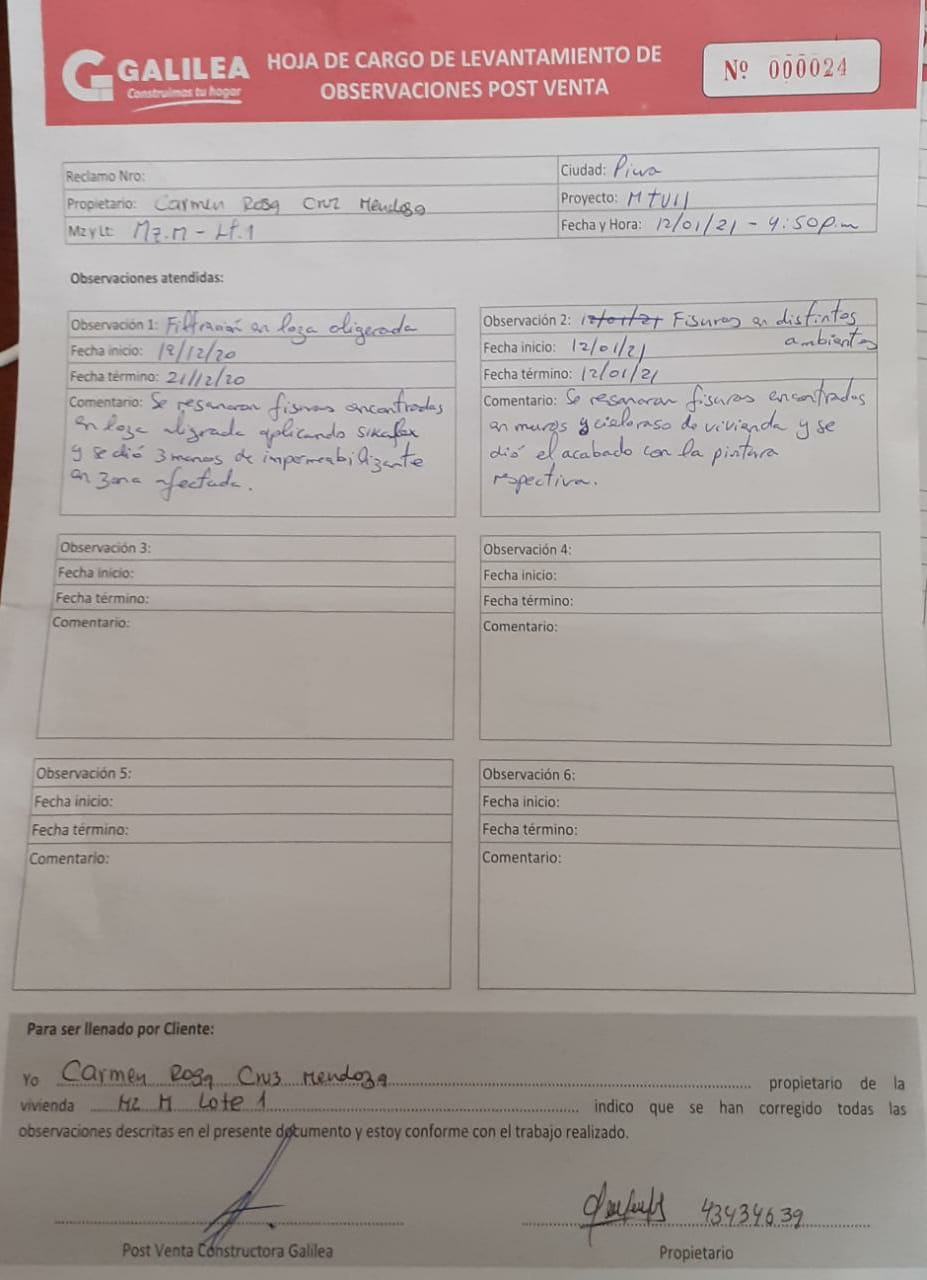 GALILEA
Construimos tu hogar
HOJA DE CARGO DE LEVANTAMIENTO DE
OBSERVACIONES POST VENTA
Nº 000024
Reclamo Nro:
Ciudad: Piura
Propietario: Carmen Rosa Cruz Mendoza
Proyecto: MTVII
Mz y Lt: Mz.M - Lt.1
Fecha y Hora: 12/01/21 - 4:50p.m
Observaciones atendidas:
Observación 1: Filtración en loza aligerada
Fecha inicio: 19/12/20
Fecha término: 21/12/20
Comentario: Se resanaron fisuras encontradas
en loza aligrada aplicando sikaflax
y se dió 3 manos de impermeabilizante
en zona afectada.
Observación 2: 12/01/21 Fisuras en distintos
ambientes
Fecha inicio: 12/01/21
Fecha término: 12/01/21
Comentario: Se resanaran fisuras encontradas
en muros y cieloraso de vivienda y se
dió el acabado con la pintura
respectiva.
Observación 3:
Fecha inicio:
Fecha término:
Comentario:
Observación 4:
Fecha inicio:
Fecha término:
Comentario:
Observación 5:
Fecha inicio:
Fecha término:
Comentario:
Observación 6:
Fecha inicio:
Fecha término:
Comentario:
Para ser llenado por Cliente:
Yo Carmen Rosa Cruz Mendoza propietario de la
vivienda Mz M Lote 1 indico que se han corregido todas las
observaciones descritas en el presente documento y estoy conforme con el trabajo realizado.
43434639
Post Venta Constructora Galilea
Propietario